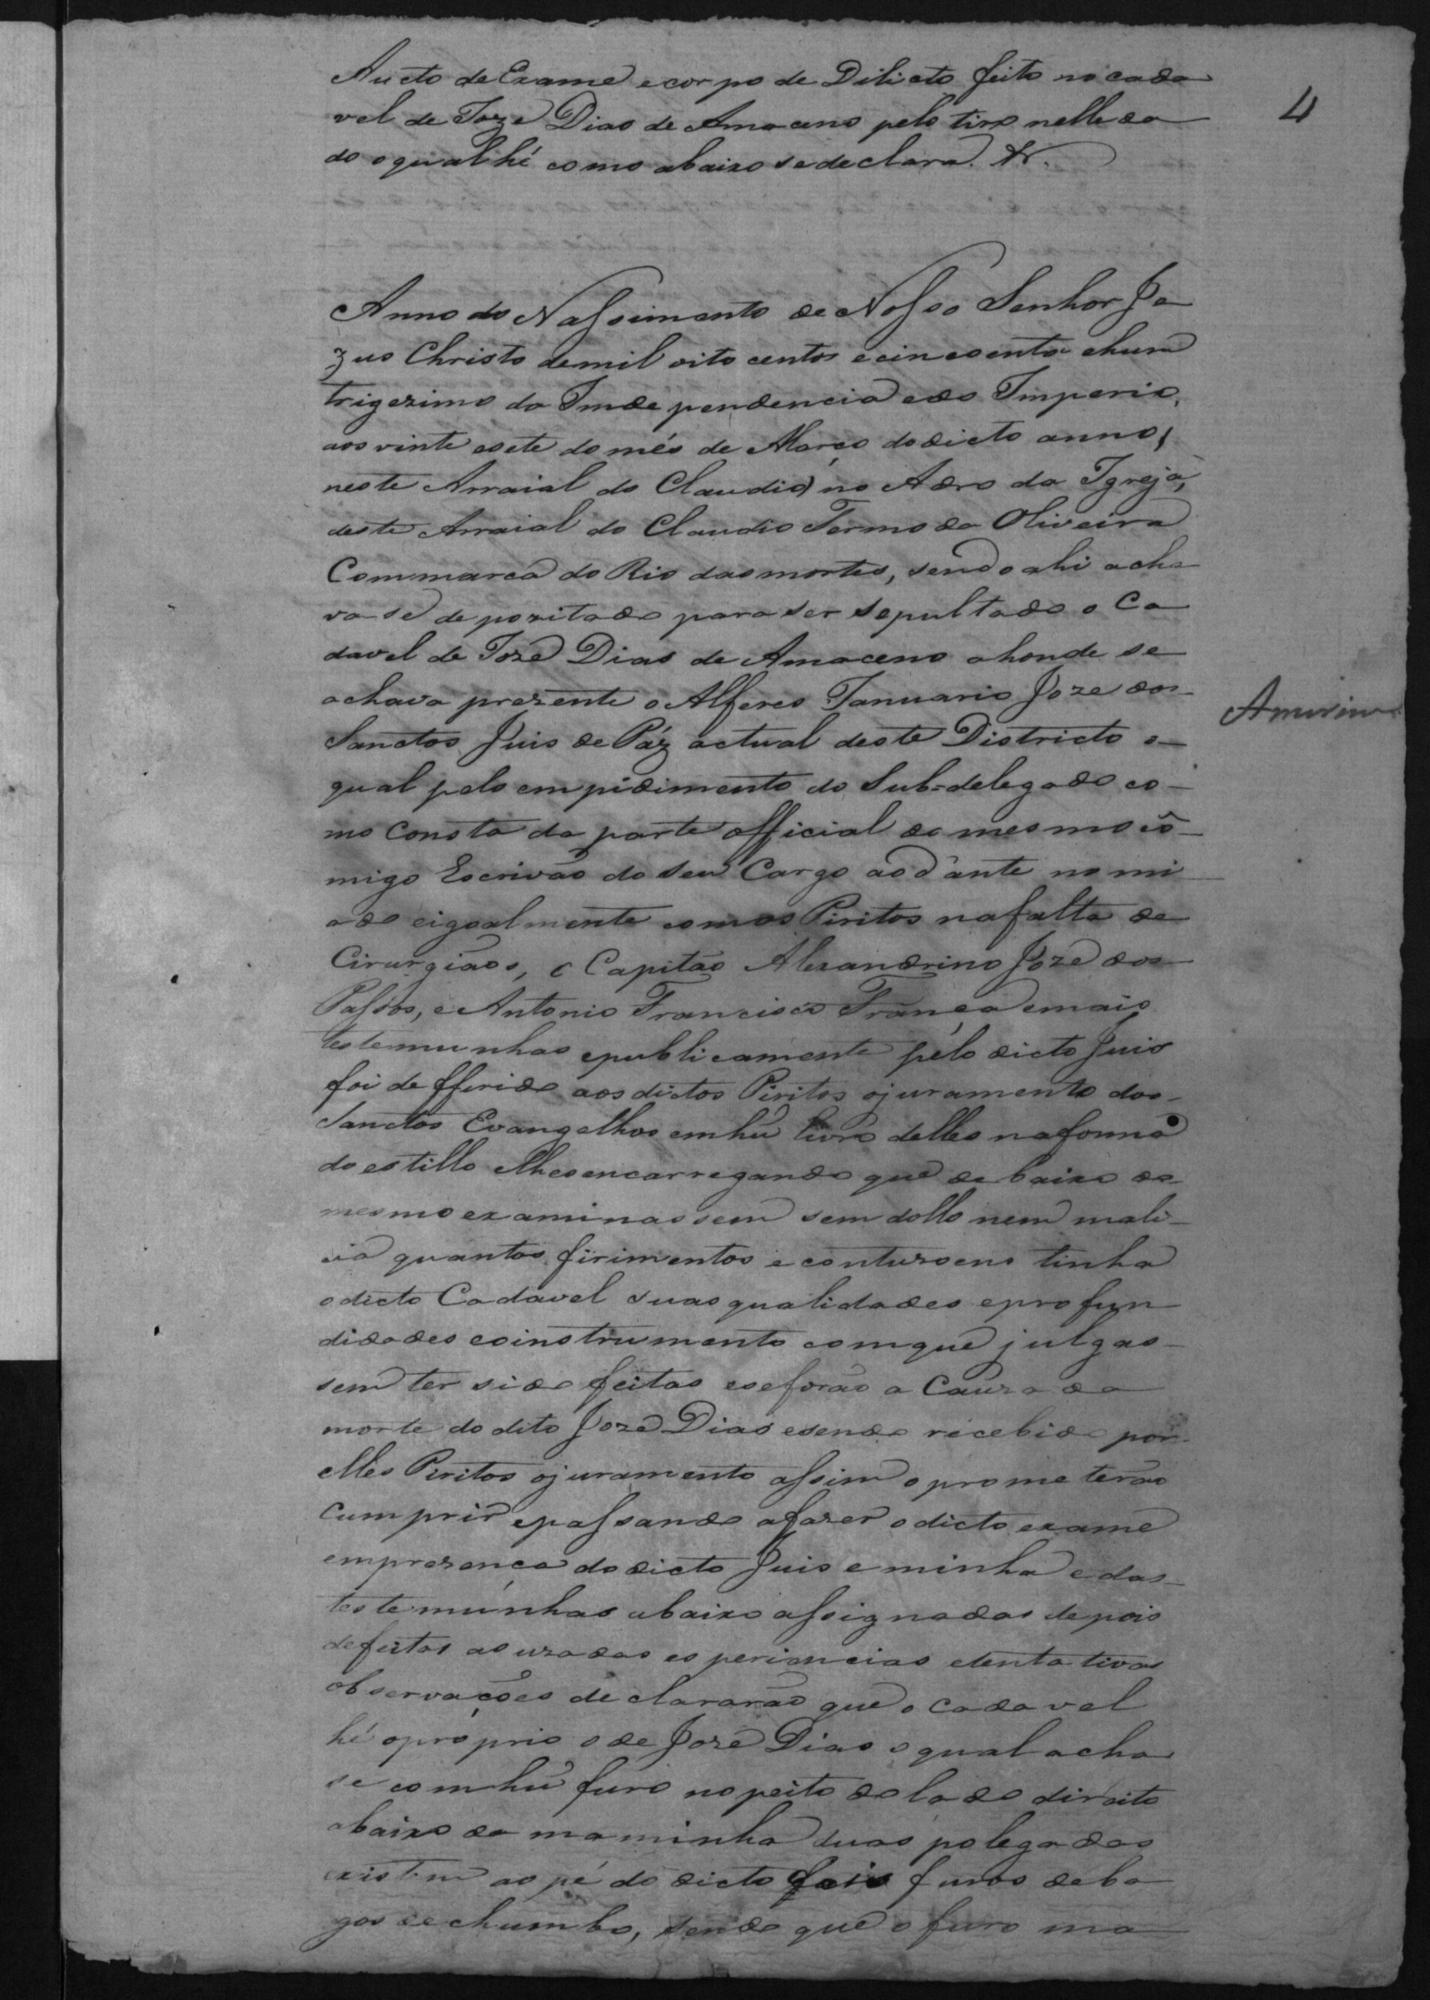 Aucto de Exame e corpo de Dilicto feito no cada
vel de Joze Dias de Amaceno pelo tiro nelle da
do o qual hé como abaixo se declara. &.
4
Anno do Nassimento de Nosso Senhor Je
zus Christo de mil oito centos e cincoenta e hum
trigezimo da Imdependencia e do Imperio,
aos vinte e sete do més de Março do dicto anno,
neste Arraial do Claudio no Adro da Igreja,
deste Arraial do Claudio Termo da Oliveira
Commarca do Rio das mortes, sendo ahi acha
va se depozitado para ser sepultado o Ca
davel de Joze Dias de Amaceno ahonde se
achava prezente o Alferes Januario Joze dos
Sanctos Juis de Páz actual deste Districto o
qual pelo empidimento do Sub=delegado co-
mo consta da parte official do mesmo cô-
migo Escrivão do seu Cargo ao d'ante nomi
ado e igoalmente com os Piritos na falta de
Cirurgiãos, o Capitão Alexandrino Joze dos
Passos, e Antonio Francisco França e mais
testemunhas e publicamente pelo dicto Juis
foi defferido aos dictos Piritos o juramento dos
Sanctos Evangelhos em hû livro delles na forma
do estillo e lhes encarregando que debaixo do
mesmo examinassem sem dollo nem mali-
cia quantos firimentos e contuzoens tinha
o dicto Cadavel suas qualidades e profun
didades e o instrumento com que julgas-
sem ter sido feitas e se forão a Cauza da
morte do dito Joze Dias e sendo recebido por
elles Piritos o juramento assim o prometerão
cumprir e passando a fazer o dicto exame
em prezença do dicto Juis e minha e das
testemunhas abaixo assignadas depois
de feitas as uzadas esperiencias e tentativas
observações declararão que o cadavel
hé o próprio o de Joze Dias o qual acha
se com hû furo no peito do lado direito
abaixo da maminha duas polegadas
existem ao pé do dicto furos de ba
gos de chumbo, sendo que o furo ma
Amorim